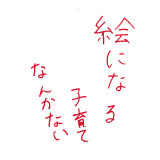 絵になる
子育て
なんかない